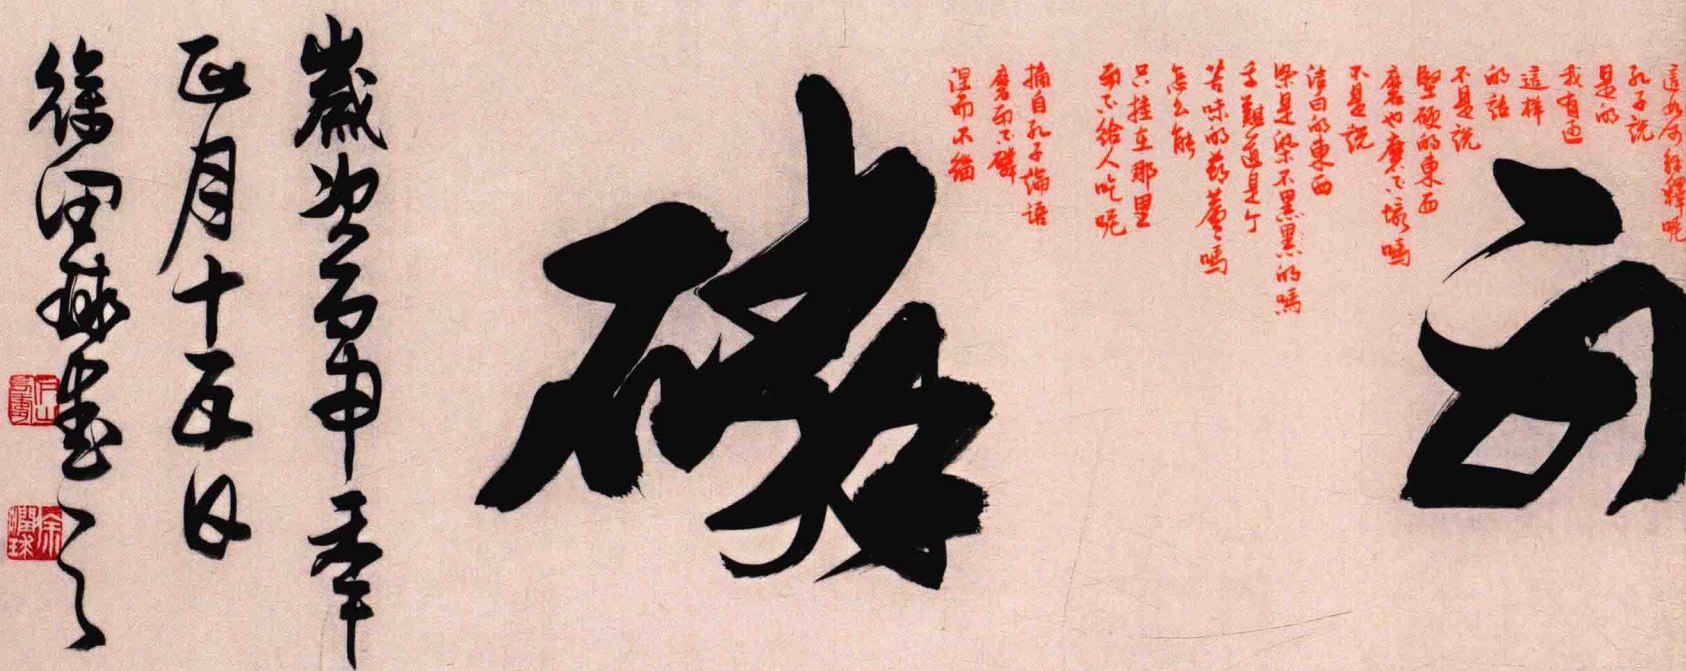 這如何解釋呢
孔子說
是的
我有過
這样
的話
不是説
堅硬的東西
磨也磨不壞嗎
不是説
洁白的東西
染是染不黑黑的嗎
難道是个
苦味的葫蘆嗎
怎么能
只挂在那里
而不给人吃呢
摘自孔子論语
磨而不磷
涅而不緇
不磷
歲次丙申年
正月十五日
徐潤球書之